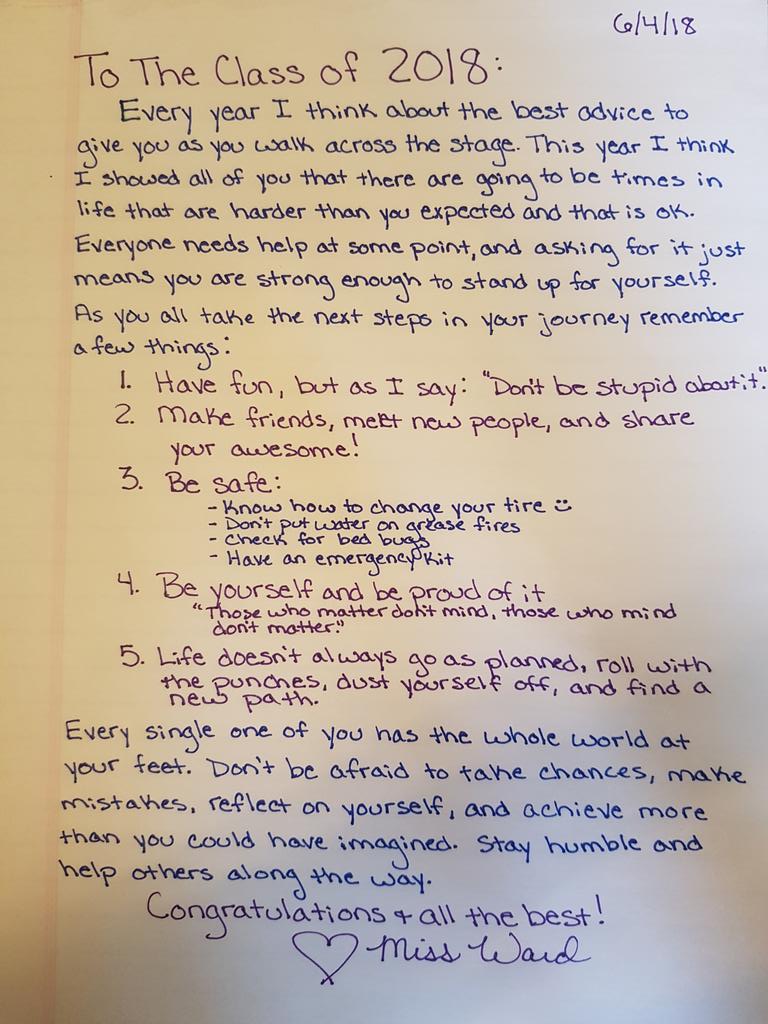 6/4/18
To The Class of 2018:
Every year I think about the best advice to
give you as you walk across the stage. This year I think
I showed all of you that there are going to be times in
life that are harder than you expected and that is ok.
Everyone needs help at some point, and asking for it just
means you are strong enough to stand up for yourself.
As you all take the next steps in your journey remember
a few things:
1. Have fun, but as I say: "Don't be stupid about it."
2. Make friends, meet new people, and share
your awesome!
3. Be safe:
- Know how to change your tire ☺
- Don't put water on grease fires
- Check for bed bugs
- Have an emergency kit
4. Be yourself and be proud of it
"Those who matter don't mind, those who mind
don't matter."
5. Life doesn't always go as planned, roll with
the punches, dust yourself off, and find a
new path.
Every single one of you has the whole world at
your feet. Don't be afraid to take chances, make
mistakes, reflect on yourself, and achieve more
than you could have imagined. Stay humble and
help others along the way.
Congratulations + all the best!
♡ Miss Ward